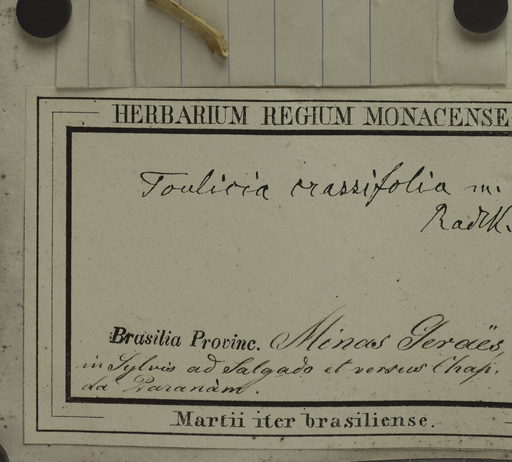 HERBARIUM REGIUM MONACENSE
Toulicia crassifolia m.
Radlk.
Brasilia Provinc. Minas Geraës,
in Sylvis ad Salgado et versus Chap.
da Paranàm.
Martii iter brasiliense.